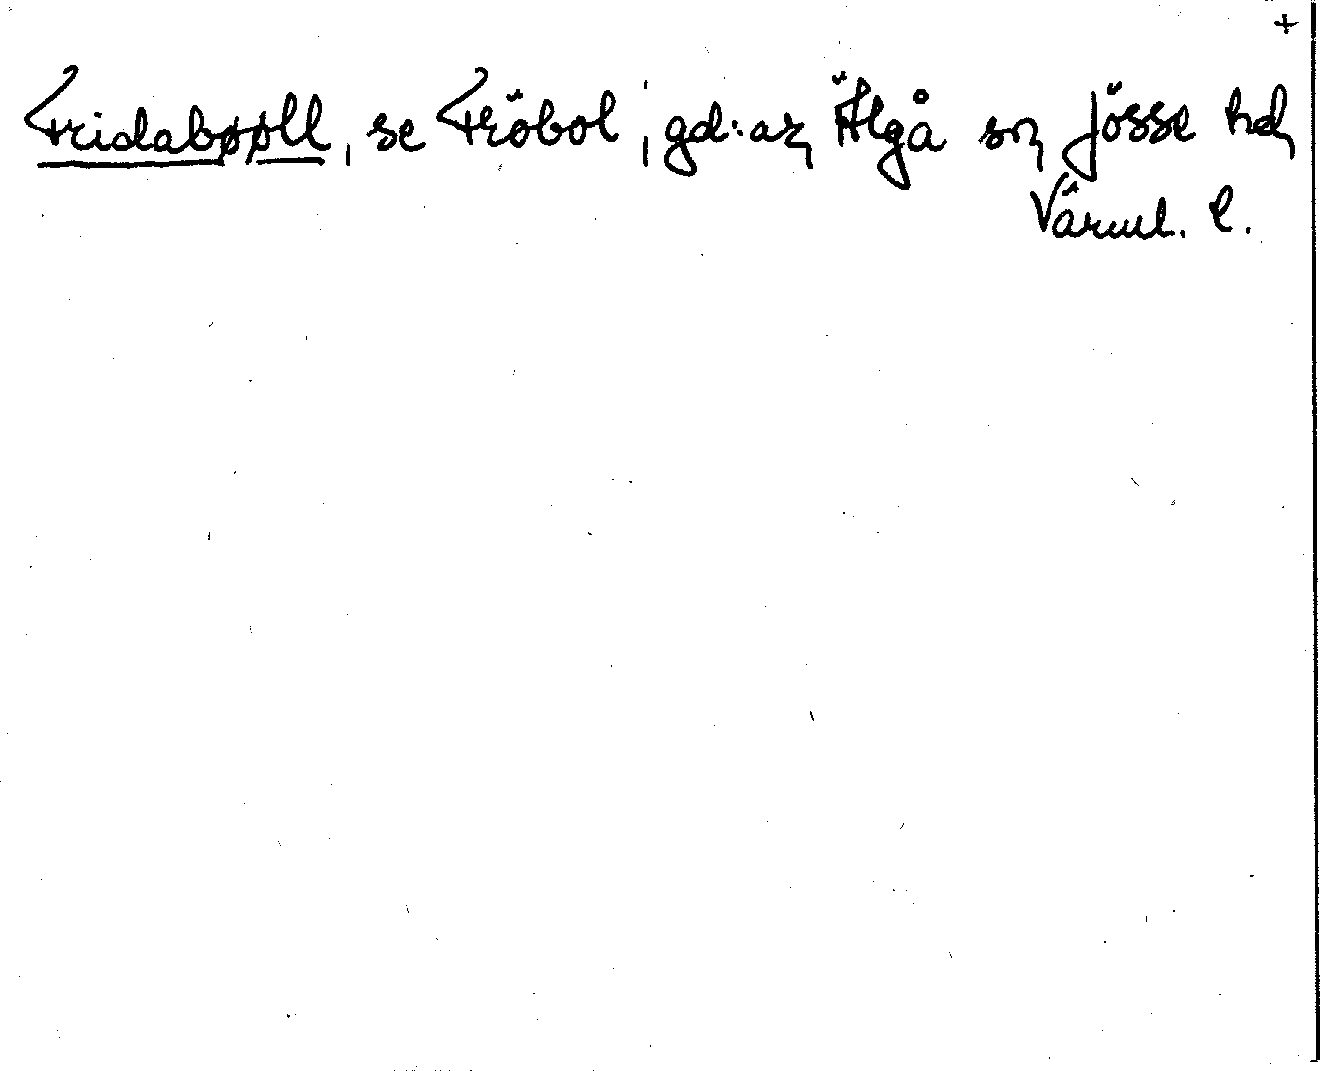 +
Fridabøøll, se Fröbol, gd:ar, Älgå sn, Jösse hd,
Värml. l.